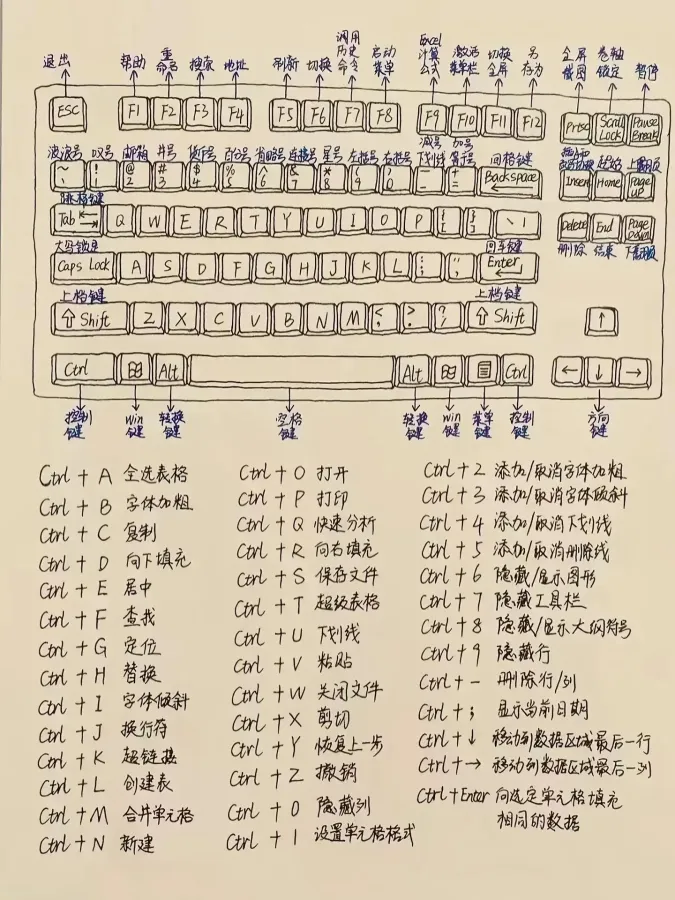 退出 帮助 重命名 搜索 地址 刷新 切换 调用历史命令 启动菜单 Excel计算公式 激活菜单栏 切换全屏 另存为 全屏截图 卷轴锁定 暂停
ESC F1 F2 F3 F4 F5 F6 F7 F8 F9 F10 F11 F12 Prtsc Scroll Lock Pause Break
波浪号 叹号 邮箱 井号 货币号 百分号 省略号 连接号 星号 左括号 右括号 减号下划线 加号等于号 回格键 起始 上翻页
~ 、 ! 1 @ 2 # 3 $ 4 % 5 ^ 6 & 7 * 8 ( 9 ) 0 — - + = Backspace Insert Home Page UP
跳格键
Tab Q W E R T Y U I O P { [ } ] \ | Delete End Page Down
大写锁定 回车键 删除 结束 下翻页
Caps Lock A S D F G H J K L : ; " ' Enter
上档键 上档键
⇧ Shift Z X C V B N M < , > . ? / ⇧ Shift ↑
Ctrl Alt Alt Ctrl ← ↓ →
控制键 win键 转换键 空格键 转换键 win键 菜单键 控制键 方向键
Ctrl + A 全选表格
Ctrl + B 字体加粗
Ctrl + C 复制
Ctrl + D 向下填充
Ctrl + E 居中
Ctrl + F 查找
Ctrl + G 定位
Ctrl + H 替换
Ctrl + I 字体倾斜
Ctrl + J 换行符
Ctrl + K 超链接
Ctrl + L 创建表
Ctrl + M 合并单元格
Ctrl + N 新建
Ctrl + O 打开
Ctrl + P 打印
Ctrl + Q 快速分析
Ctrl + R 向右填充
Ctrl + S 保存文件
Ctrl + T 超级表格
Ctrl + U 下划线
Ctrl + V 粘贴
Ctrl + W 关闭文件
Ctrl + X 剪切
Ctrl + Y 恢复上一步
Ctrl + Z 撤销
Ctrl + 0 隐藏列
Ctrl + 1 设置单元格格式
Ctrl + 2 添加/取消字体加粗
Ctrl + 3 添加/取消字体倾斜
Ctrl + 4 添加/取消下划线
Ctrl + 5 添加/取消删除线
Ctrl + 6 隐藏/显示图形
Ctrl + 7 隐藏工具栏
Ctrl + 8 隐藏/显示大纲符号
Ctrl + 9 隐藏行
Ctrl + - 删除行/列
Ctrl + ; 显示当前日期
Ctrl + ↓ 移动到数据区域最后一行
Ctrl + → 移动到数据区域最后一列
Ctrl+Enter 向选定单元格填充
相同的数据